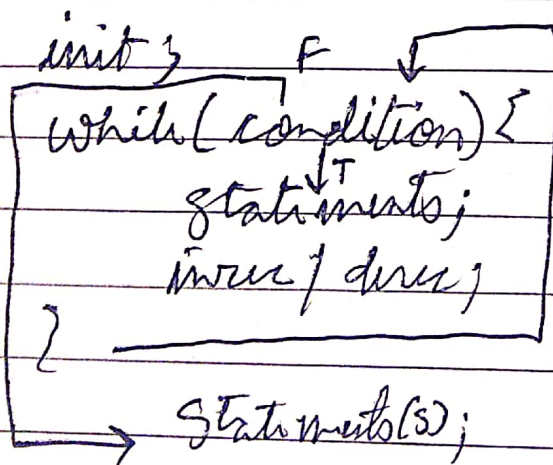 init; F
while(condition){
T
statements;
incre/decre;
}
statements(s);